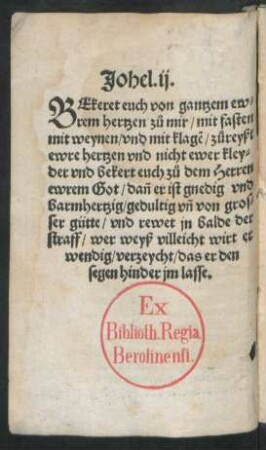 Johel.ij.
BEkeret euch von gantzem ew⸗
rem hertzen zů mir / mit fasten
mit weynen / vnd mit klagē / zůreyst
ewre hertzen vnd nicht ewer kley⸗
der vnd bekert euch zů dem Herren
ewrem Got / dañ er ist gnedig vnd
barmhertzig / gedultig vñ von gros⸗
ser gůtte / vnd rewet jn balde der
straff / wer weyß villeicht wirt er
wendig / verzeycht / das er den
segen hinder jm lasse.
Ex
Biblioth. Regia
Berolinensi.